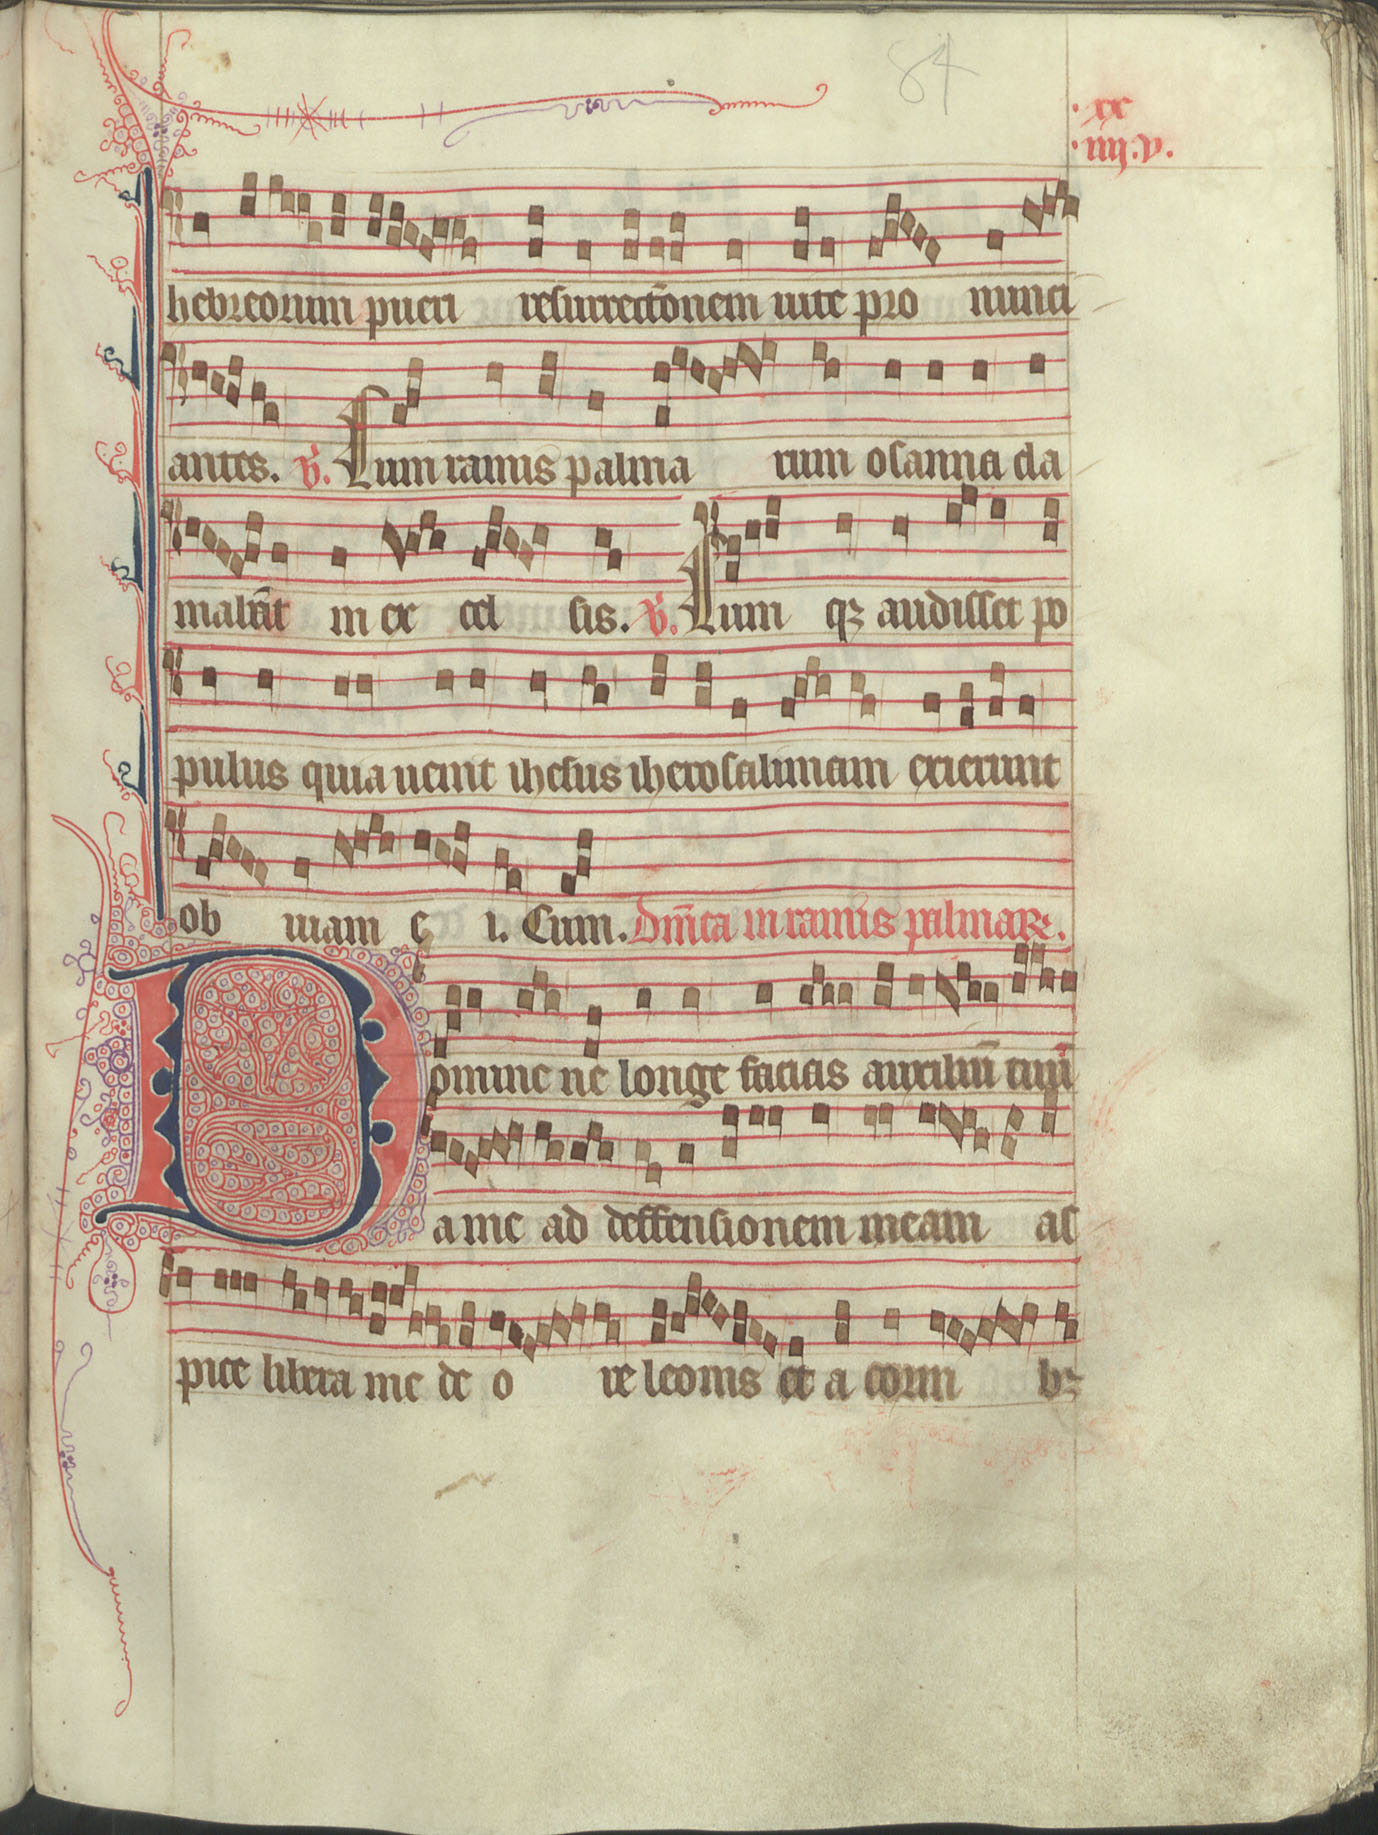 84
·xx
·iiij.v.
hebreorum pueri resurrectōnem uite pro nunci
antes. v̄. Cum ramis palma rum osanna cla
mabāt in ex cel sis. v̄. Cum qꝫ audisset po
pulus quia uenit ihesus iherosalimam exierunt
ob uiam e i. Cum. Dn̄ica in ramis palmaꝝ.
Domine ne longe facias auxiliū tuū
a me ad deffensionem meam as
pice libera me de o re leonis et a corni bꝫ